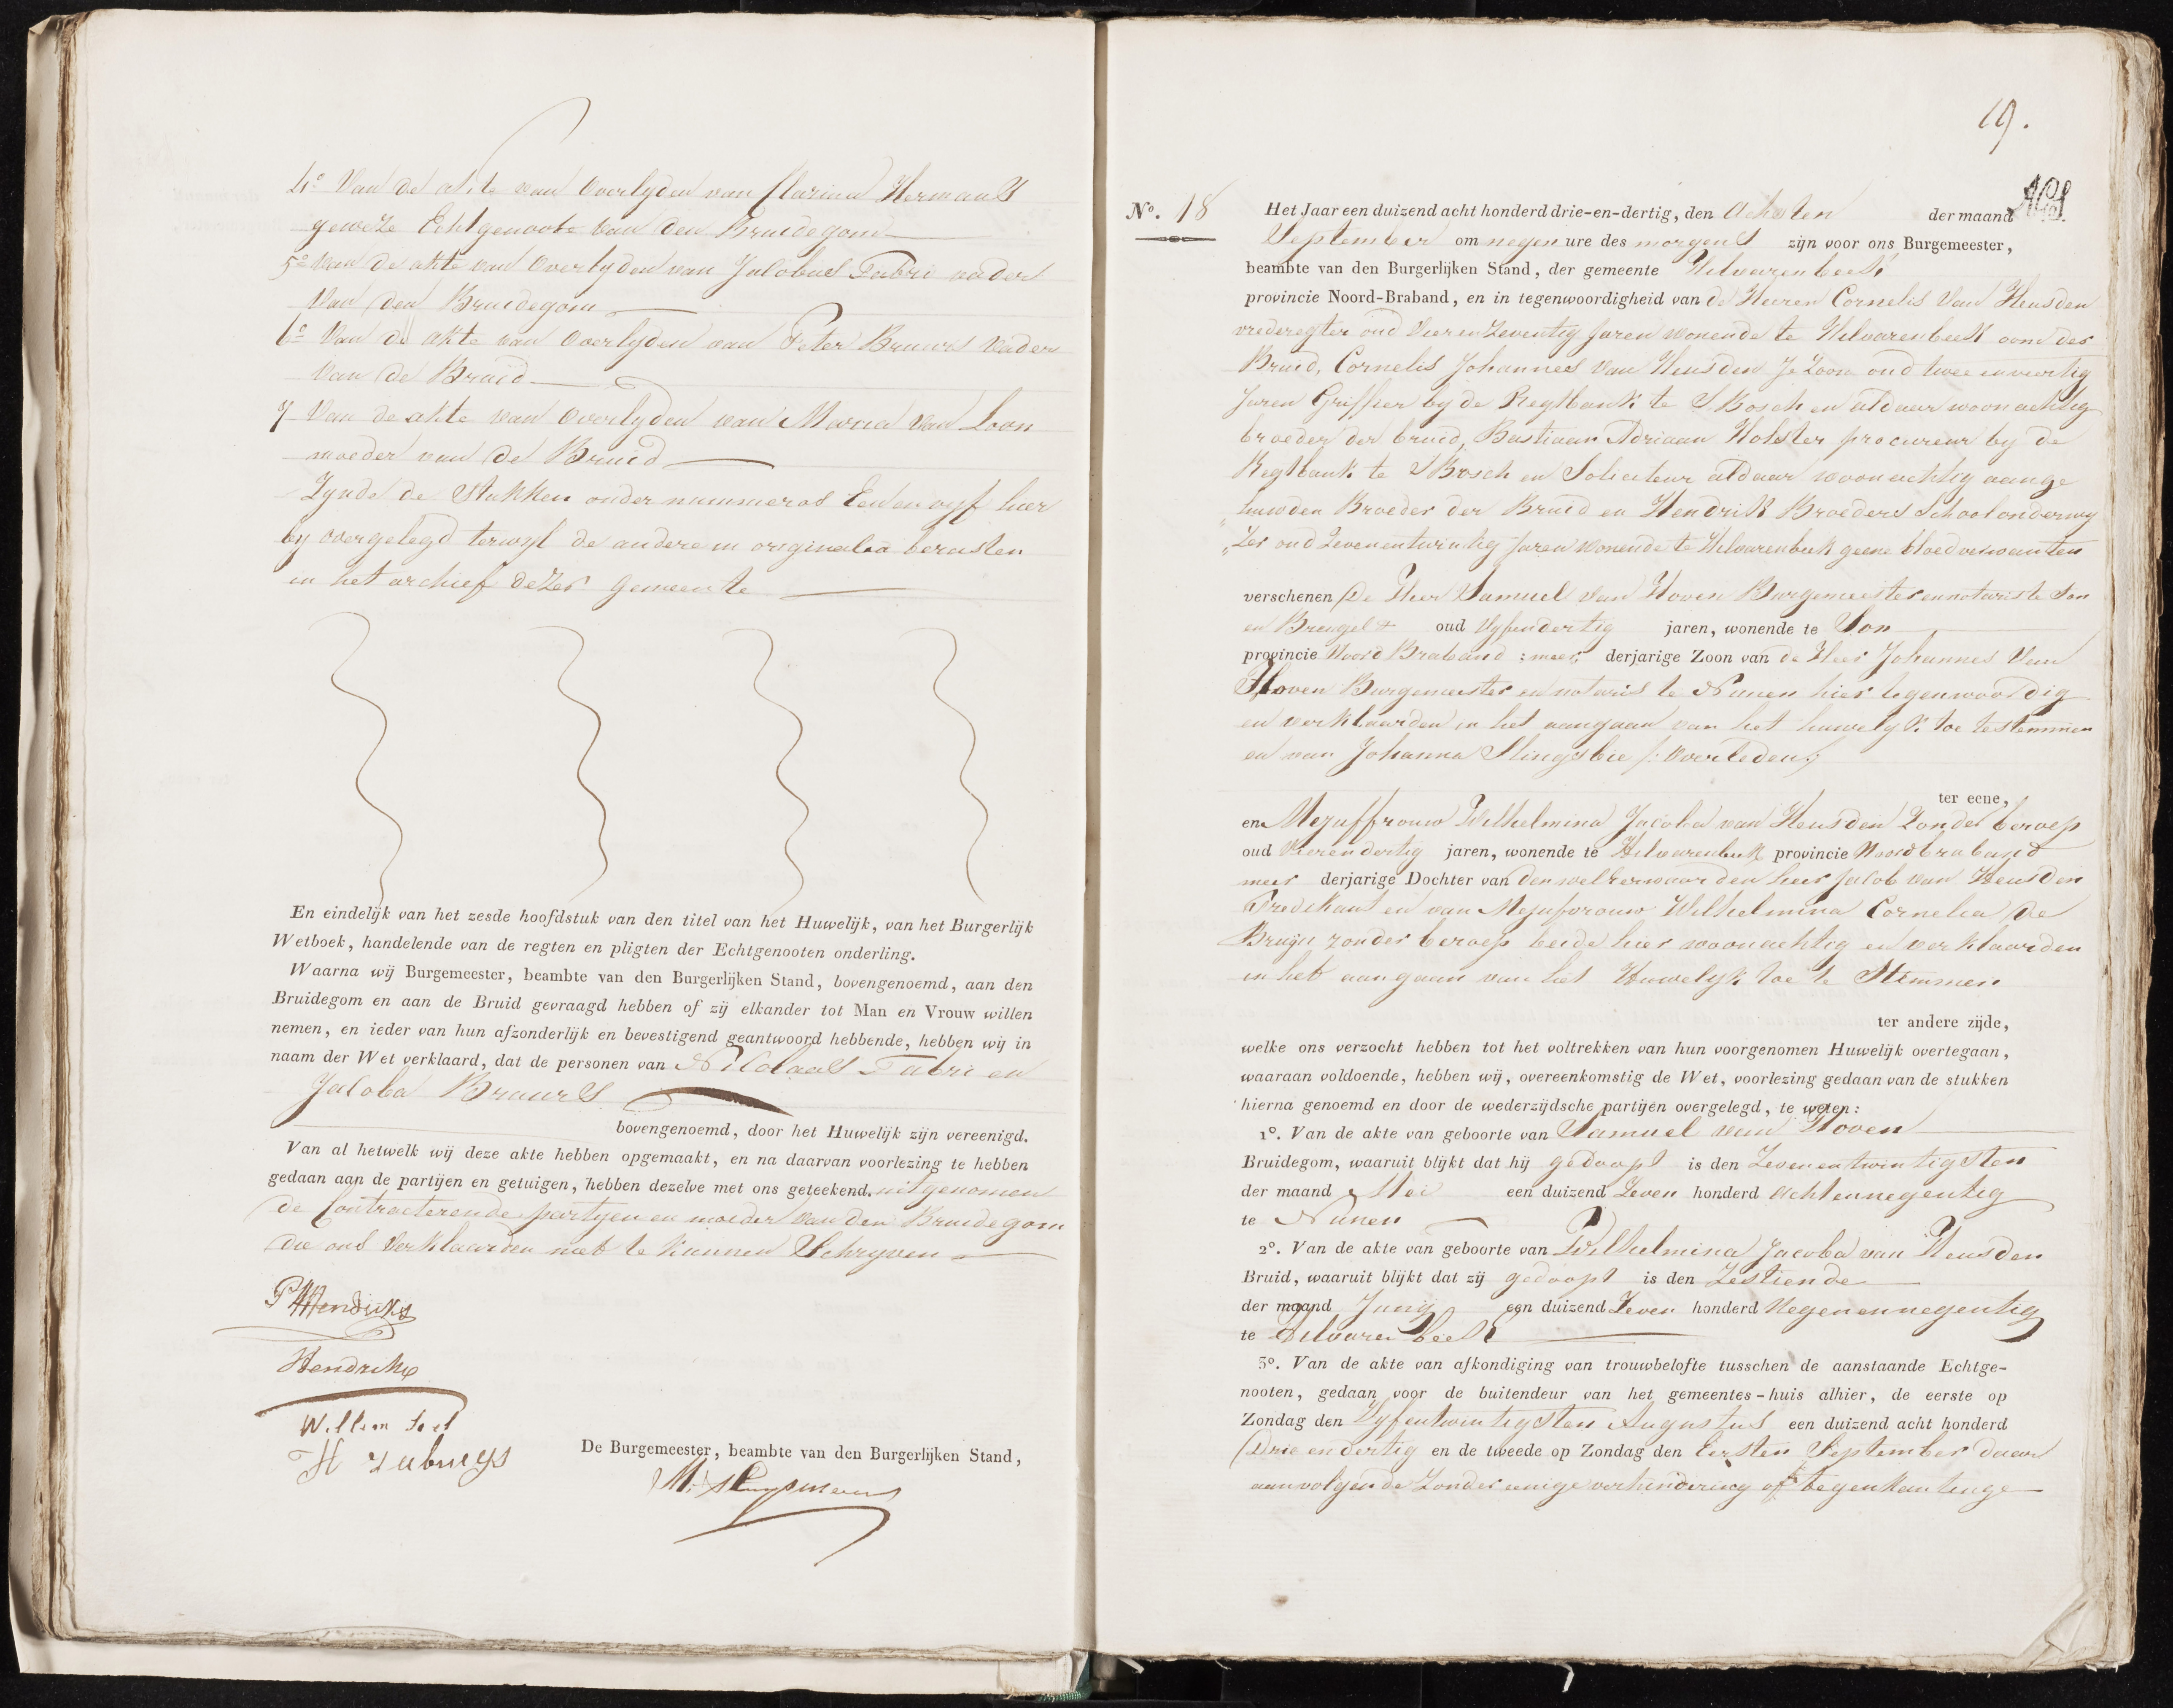 4º Van de akte van Overlyden van Clasina Hermans
geweze Echtgenoote van den Bruidegom
5º Van de akte van Overlyden van Jacobus Fabri vader
Van den Bruidegom
6º Van de akte van Overlyden van Peter Brauers Vader
Van de Bruid
7 Van de akte van Overlyden van Maria van Loon
moeder van de Bruid
Zynde de Stukken onder nummeros Een en vyf hier
by overgelegd terwyl de andere in originala berusten
in het archief dezer gemeente
En eindelijk van het zesde hoofdstuk van den titel van het Huwelijk, van het Burgerlijk
Wetboek, handelende van de regten en pligten der Echtgenooten onderling.
Waarna wij Burgemeester, beambte van den Burgerlijken Stand, bovengenoemd, aan den
Bruidegom en aan de Bruid gevraagd hebben of zij elkander tot Man en Vrouw willen
nemen, en ieder van hun afzonderlijk en bevestigend geantwoord hebbende, hebben wij in
naam der Wet verklaard, dat de personen van Nicolaas Fabri en
Jacoba Brauers
bovengenoemd, door het Huwelijk zijn vereenigd.
Van al hetwelk wij deze akte hebben opgemaakt, en na daarvan voorlezing te hebben
gedaan aan de partijen en getuigen, hebben dezelve met ons geteekend. uitgenomen
de Contracterende partyen en moeder van den Bruidegom
die ons Verklaarden niet te kunnen Schryven
Hendriks
Hendrikx
Willem
H
De Burgemeester, beambte van den Burgerlijken Stand,
19.
Nº. 18 Het Jaar een duizend acht honderd drie-en-dertig, den Achsten der maand
September om negen ure des morgens zijn voor ons Burgemeester,
beambte van den Burgerlijken Stand, der gemeente Hilvarenbeek
provincie Noord-Braband, en in tegenwoordigheid van de Heeren Cornelis Van Heusden
vrederegter oud Vier en Zeventig Jaren wonende te Hilvarenbeek oom der
Bruid, Cornelis Johannes Van Heusden Jz Zoon oud twee en veertig
Jaren Griffier by de Regtbank te S Bosch en aldaar woonachtig
broeder der bruid, Bastiaan Adriaan Holster procureur by de
Regtbank te S Bosch en Soliciteur aldaar woonachtig aange
huwden Broeder der Bruid en Hendrik Broeders Schoolonderwy
Zer oud Zevenentwintig Jaren wonende te Hilvarenbeek geene bloedverwanten
verschenen De Heer Samuel van Hoven Burgemeester en notaris te Son
en Breugel oud Vyfendertig jaren, wonende te Son
provincie Noord Braband : meer derjarige Zoon van de Heer Johannes Van
Hoven Burgemeester en notaris te Nunen hier tegenwoordig
en verklaarden in het aangaan van het huwelyk toe te stemmen
en van Johanna Slingsbie /: Overleden
ter eene,
en Mejuffrouw Wilhelmina Jacoba van Heusden Zonder beroep
oud Vierendertig jaren, wonende te Hilvarenbeek provincie Noordbraband
meer derjarige Dochter van den weleerwaarden heer Jacob van Heusden
Predikant en van Mejufvrouw Wilhelmina Cornelia De
Bruijn zonder beroep beide hier woonachtig en verklaarden
in het aangaan van het Huwelyk toe te Stemmen
ter andere zijde,
welke ons verzocht hebben tot het voltrekken van hun voorgenomen Huwelijk overtegaan,
waaraan voldoende, hebben wij, overeenkomstig de Wet, voorlezing gedaan van de stukken
hierna genoemd en door de wederzijdsche partijen overgelegd, te weten:
1º. Van de akte van geboorte van Samuel van Hoven
Bruidegom, waaruit blijkt dat hij gedoopt is den Zevenentwintigsten
der maand Mei een duizend Zeven honderd achtennegentig
te Nunen
2º. Van de akte van geboorte van Wilhelmina Jacoba van Heusden
Bruid, waaruit blijkt dat zij gedoopt is den Zestiende
der maand Junij een duizend Zeven honderd Negenennegentig
te Hilvarenbeek
3º. Van de akte van afkondiging van trouwbelofte tusschen de aanstaande Echtge-
nooten, gedaan voor de buitendeur van het gemeentes-huis alhier, de eerste op
Zondag den Vyfentwintigsten Augustus een duizend acht honderd
Drie en dertig en de tweede op Zondag den Eersten September daar
aanvolgende Zonder eenige verhindering of tegenkantinge